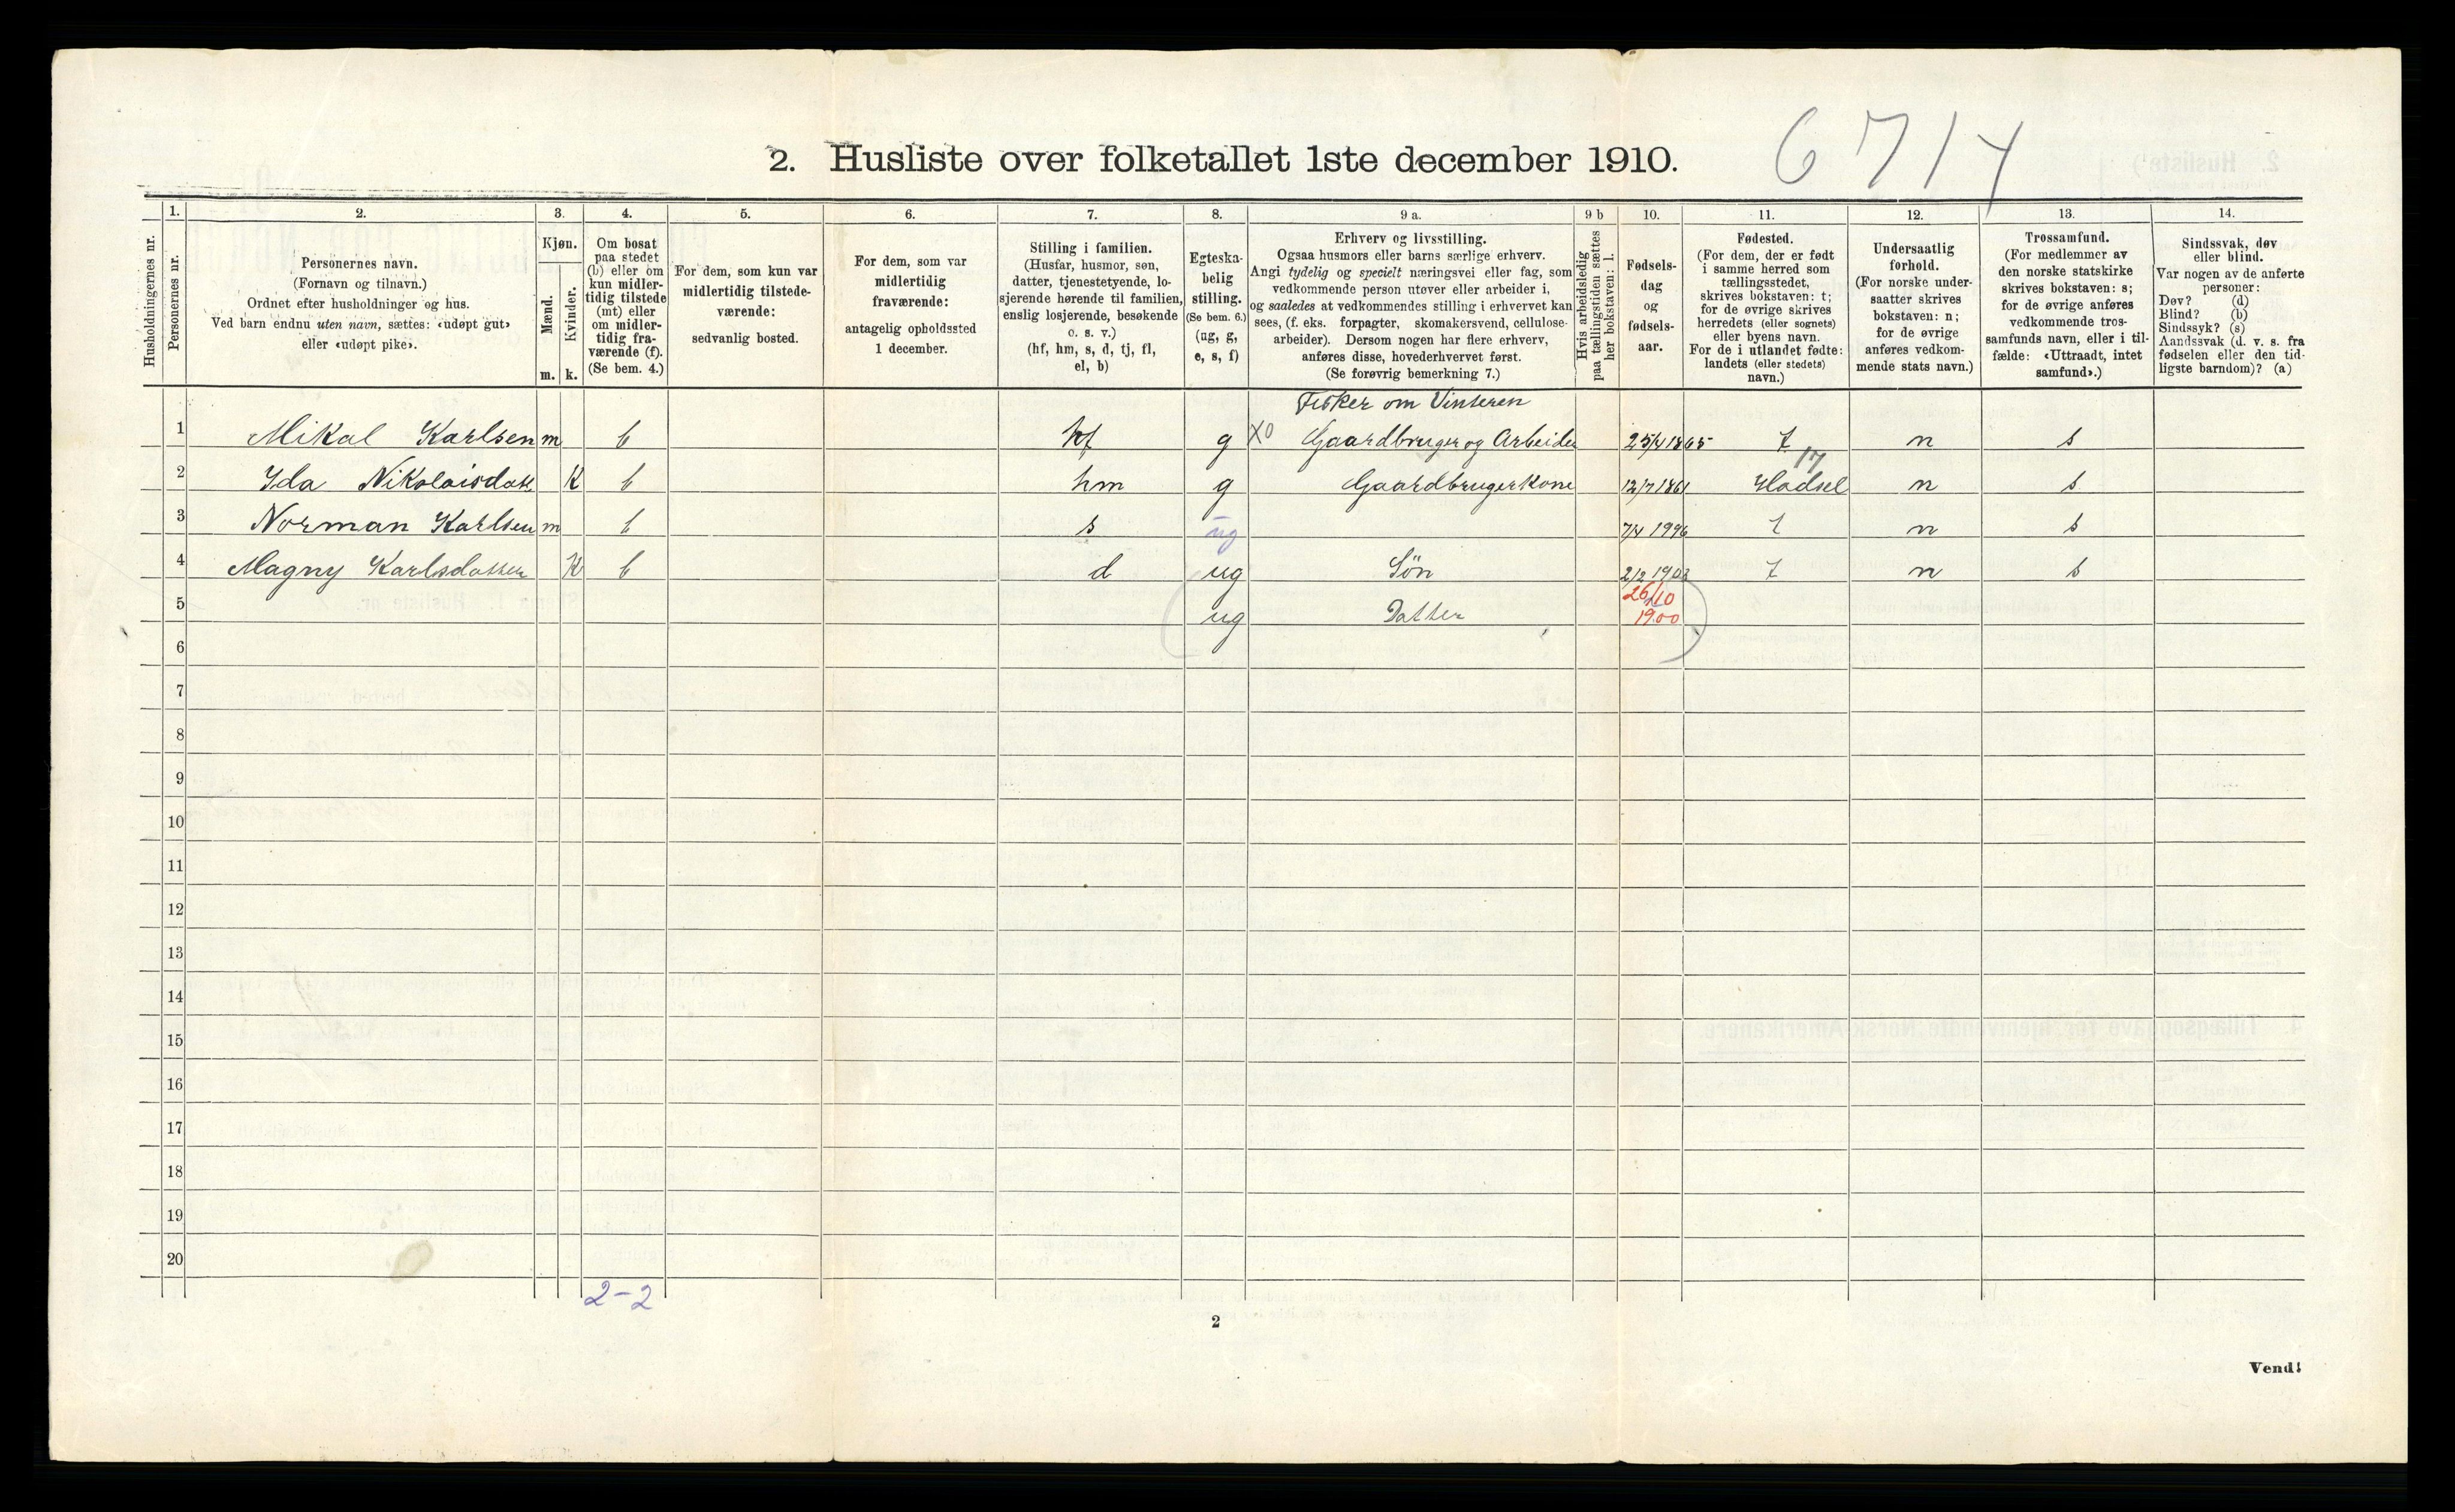 2. Husliste over folketallet 1ste december 1910.
6714
Husholdningernes nr.
1.
Personernes nr.
2.
Personernes navn.
(Fornavn og tilnavn.)
Ordnet efter husholdninger og hus.
Ved barn endnu uten navn, sættes: «udøpt gut»
eller «udøpt pike».
3.
Kjøn.
Mænd.
Kvinder.
m. k.
4.
Om bosat
paa stedet
(b) eller om
kun midler-
tidig tilstede
(mt) eller
om midler-
tidig fra-
værende (f).
(Se bem. 4.)
5.
For dem, som kun var
midlertidig tilstede-
værende:
sedvanlig bosted.
6.
For dem, som var
midlertidig
fraværende:
antagelig opholdssted
1 december.
7.
Stilling i familien.
(Husfar, husmor, søn,
datter, tjenestetyende, lo-
sjerende hørende til familien,
enslig losjerende, besøkende
o. s. v.)
(hf, hm, s, d, tj, fl,
el, b)
8.
Egteska-
belig
stilling.
(Se bem. 6.)
(ug, g,
e, s, f)
9 a.
Erhverv og livsstilling.
Ogsaa husmors eller barns særlige erhverv.
Angi tydelig og specielt næringsvei eller fag, som
vedkommende person utøver eller arbeider i,
og saaledes at vedkommendes stilling i erhvervet kan
sees, (f. eks. forpagter, skomakersvend, cellulose-
arbeider). Dersom nogen har flere erhverv,
anføres disse, hovederhvervet først.
(Se forøvrig bemerkning 7.)
9 b
Hvis arbeidsledig
paa tællingstiden sættes
her bokstaven: l.
10.
Fødsels-
dag
og
fødsels-
aar.
11.
Fødested.
(For dem, der er født
i samme herred som
tællingsstedet,
skrives bokstaven: t;
for de øvrige skrives
herredets (eller sognets)
eller byens navn.
For de i utlandet fødte:
landets (eller stedets)
navn.)
12.
Undersaatlig
forhold.
(For norske under-
saatter skrives
bokstaven: n;
for de øvrige
anføres vedkom-
mende stats navn.)
13.
Trossamfund.
(For medlemmer av
den norske statskirke
skrives bokstaven: s;
for de øvrige anføres
vedkommende tros-
samfunds navn, eller i til-
fælde: «Uttraadt, intet
samfund».)
14.
Sindssvak, døv
eller blind.
Var nogen av de anførte
personer:
Døv? (d)
Blind? (b)
Sindssyk? (s)
Aandssvak (d. v. s. fra
fødselen eller den tid-
ligste barndom)? (a)
Fisker om Vinteren
1 Mikal Karlsen m b hf g X0 Gaardbruger og Arbeider 25/4 1865 t n s
17
2 Ida Nikolaisdatt K b hm g Gaardbrugerkone 12/7 1861 Hadsel n s
3 Norman Karlsen m b s ug 7/4 1996 t n s
4 Magny Karlsdatter K b d ug Søn 2/2 1903 t n s
5 ug Datter 26/10
1900
6
7
8
9
10
11
12
13
14
15
16
17
18
19
20
2-2
2
Vend!